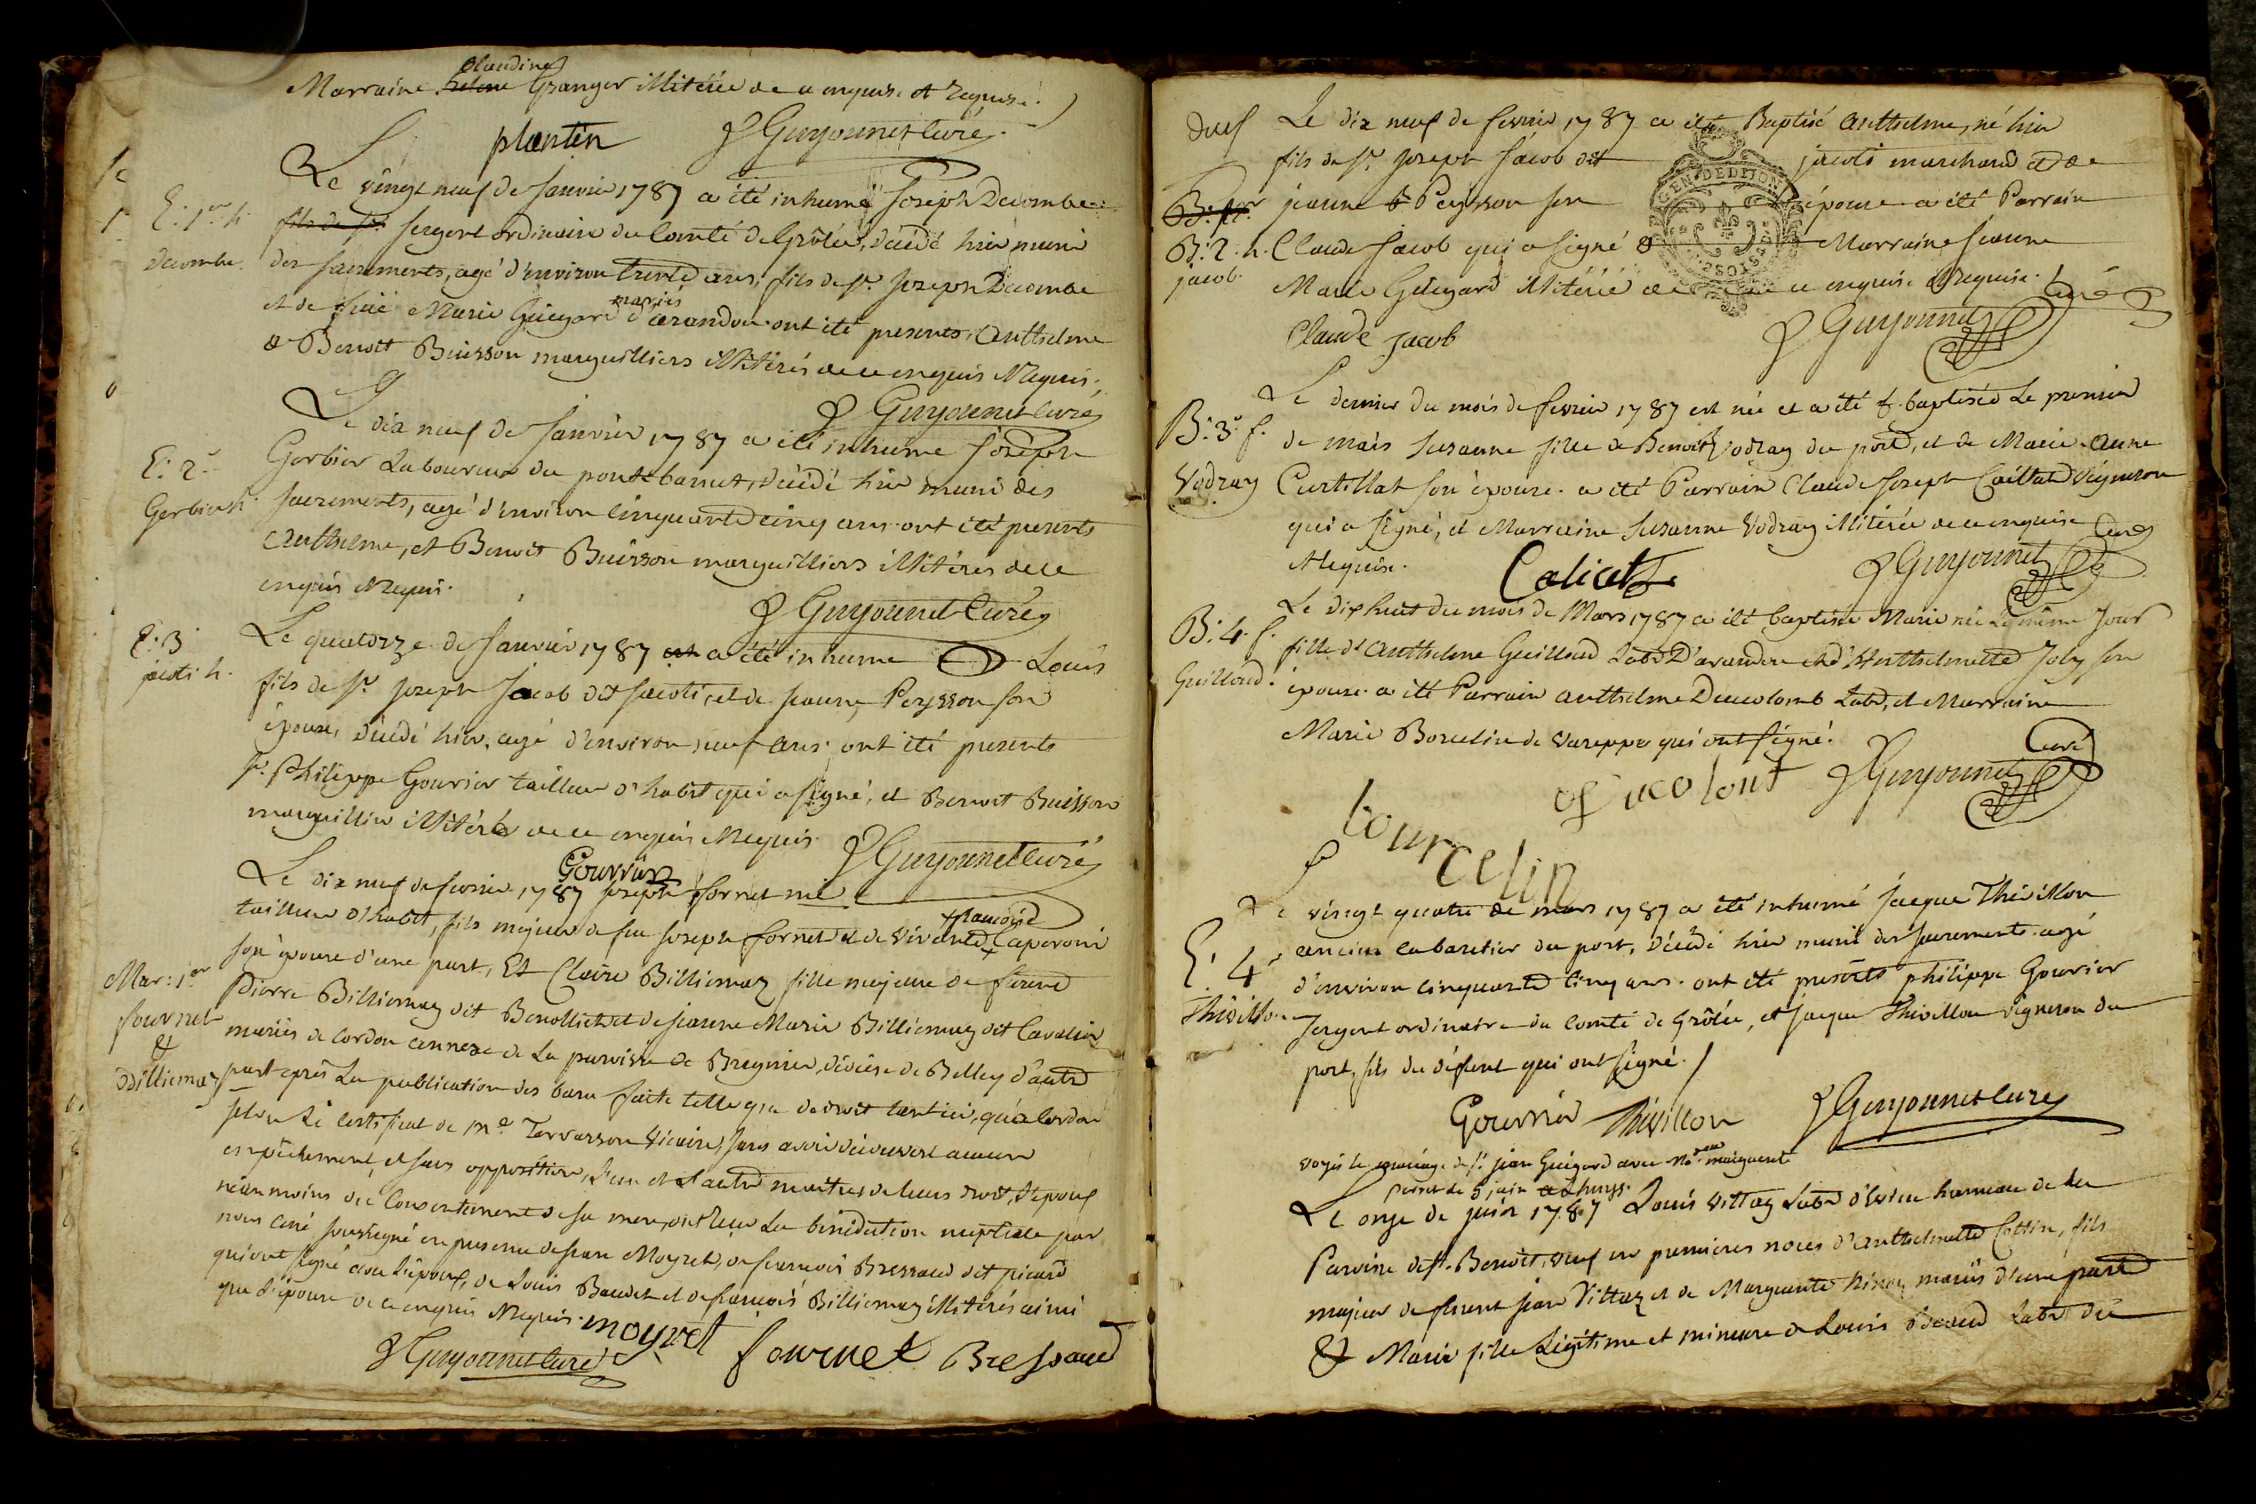 Claudine
Marraine helene Granger illitérée de ce enquise et requise.
plantin Guyonnet curé
Le vingt neuf de Janvier 1787 a été inhumé Joseph Decombe
E: 1er h.
Decombe.
fils de sr. sergent ordinaire du Comté de Grôlée, décédé hier muni
des sacrements, agé d'environ trente ans, fils de sr. Joseph Decombe
mariés
et de Marie Guigard d'arandon ont été presents, Anthelme
& Benoit Buisson marguilliers illitérés de ce enquis & requis.
Guyonnet curé
Le dix neuf de Janvier 1787 a été inhumé Joseph
E: 2e
Gerbier h.
Gerbier Laboureur du pont banut, décédé hier muni des
sacrements, agé d'environ Cinquante cinq ans. ont été presents
Anthelme, et Benoit Buisson marguilliers illitérés de ce
enquis & requis.
Guyonnet Curé
Le quatorze de Janvier 1787 est a été inhumé Louis
E: 3
jacoti h.
fils de sr. Joseph Jacob dit Jacoti, et de Jeanne Peysson son
épouse, décédé hier, agé d'environ neuf ans. ont été presents
sr. Philippe Gourier tailleur d'habit qui a signé, et Benoit Buisson
marguillier illitéré de ce enquis & requis.
Gourrier Guyonnet curé
Le dix neuf de fevrier 1787 Joseph fornet
françoise
tailleur d'habit, fils majeur de feu Joseph fornet et de vivante Caperoni
Mar: 1er
fournet
&
Billiemaz
son épouse d'une part, Et Claire Billiemaz fille majeure de
Pierre Billiemaz dit Benolliet et de Jeanne Marie Billiemaz dit Cavalier
mariés de Cordon annexe de la paroisse de Bregnier, diocèse de Belley d'autre
part après La publication des bans faite telle que de droit tant ici, qu'a Cordon
selon Le certificat de Me. Terrasson Vicaire, sans avoir découvert aucun
empêchement, et sans opposition, L'un et L'autre maitres de leurs droits, L'époux
néanmoins du Consentement de sa mere, ont reçu La bénédiction nuptiale par
nous curé soussigné en presence de Jean Moyret, de francois Bressaud dit picard
qui ont signé avec L'époux, de Louis Baudet et de francois Billiemaz illitérés ainsi
que L'épouse de ce enquis & requis. moyret
Guyonnet curé fournet Bressaud
Le dix neuf de fevrier 1787 a été Baptisé Anthelme, né hier
fils de sr. Joseph Jacob dit jacoti marchand et de
B: 1er
B: 2. h.
jacob.
jeanne Peysson son épouse a été Parrain
Claude Jacob qui a signé & Marraine Jeanne
Marie Guigard illitérée de ce enquise & requise.
Claude Jacob Guyonnet Curé
GEN. DE DIJON
Le dernier du mois de fevrier 1787 est née et a été baptisée Le premier
B: 3e f.
Vodzay
de mars Susanne fille de Benoit Vodzay du port, et de Marie-Anne
Curtillat son épouse. a été Parrain Claude Joseph Caillat Vigneron
qui a signé, et Marraine Susanne Vodzay illitérée de ce enquise
& requise.
Calliat Guyonnet Curé
Le dixhuit du mois de Mars 1787 a été baptisée Marie née Le même Jour
B: 4 f.
Guilloud.
fille d'Anthelme Guilloud Labr. D'arandon et d'Anthelmette Joly son
épouse. a été Parrain Anthelme Ducolomb Labr. et Marraine
Marie Borcelin de Vareppe qui ont signé.
ducolont Guyonnet Curé
bourcelin
Le vingt quatre de mars 1787 a été inhumé Jacque Thévillon
E: 4e
Thivillon
ancien cabaretier du port, décédé hier muni des sacrements. agé
d'environ cinquante cinq ans. ont été présents philippe Gourier
sergent ordinaire du Comté de Grôlée, et Jacque Thivillon vigneron du
port, fils du défunt qui ont signé.
Gourrier Thivillon Guyonnet curé
voyés le mariage de sr. jean Guigard avec marguerite
perret Le 5 juin
Le onze de juin 1787 Louis Vittoz Labr. hameau de La
Paroisse de St. Benoit, veuf en premieres noces d'Anthelmette Cottin, fils
majeur de florent jean Vittoz et de Marguerite mariés d'une part
& Marie fille Légitime et mineure de Louis Labr. du